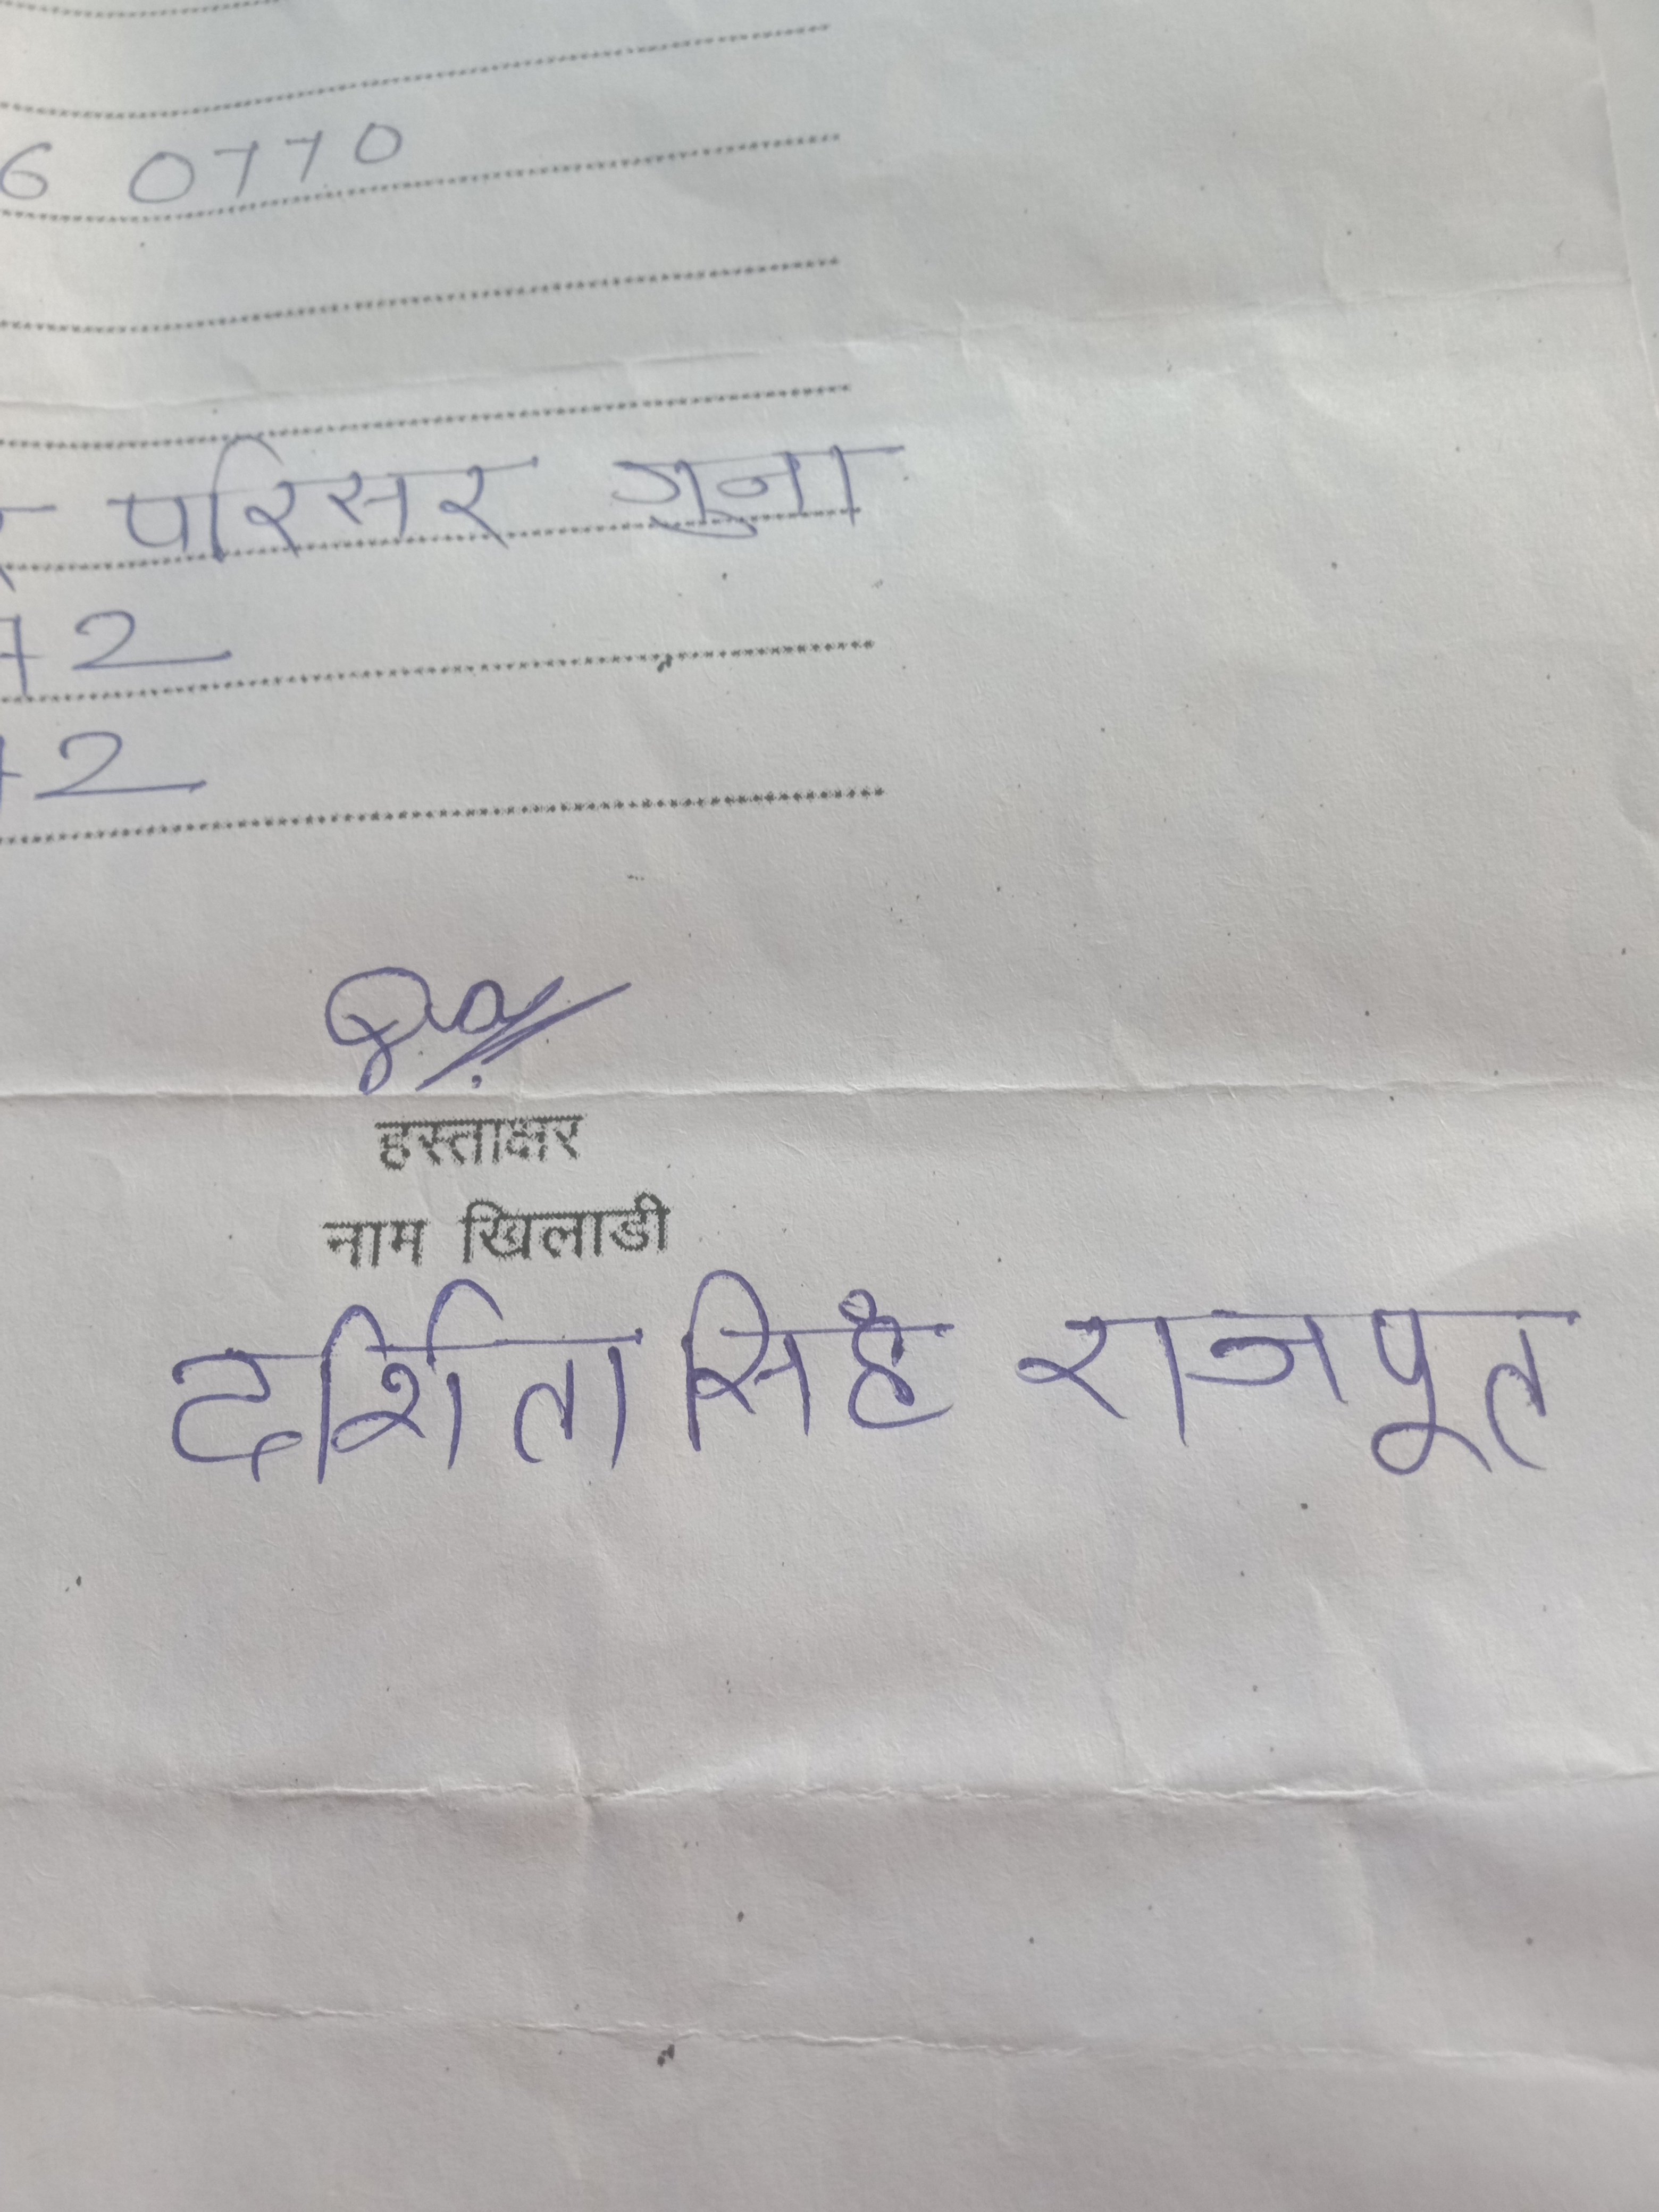 6 0770
परिसर गुना
72
72
हस्ताक्षर
नाम खिलाडी
दर्शिता सिहं राजपूत